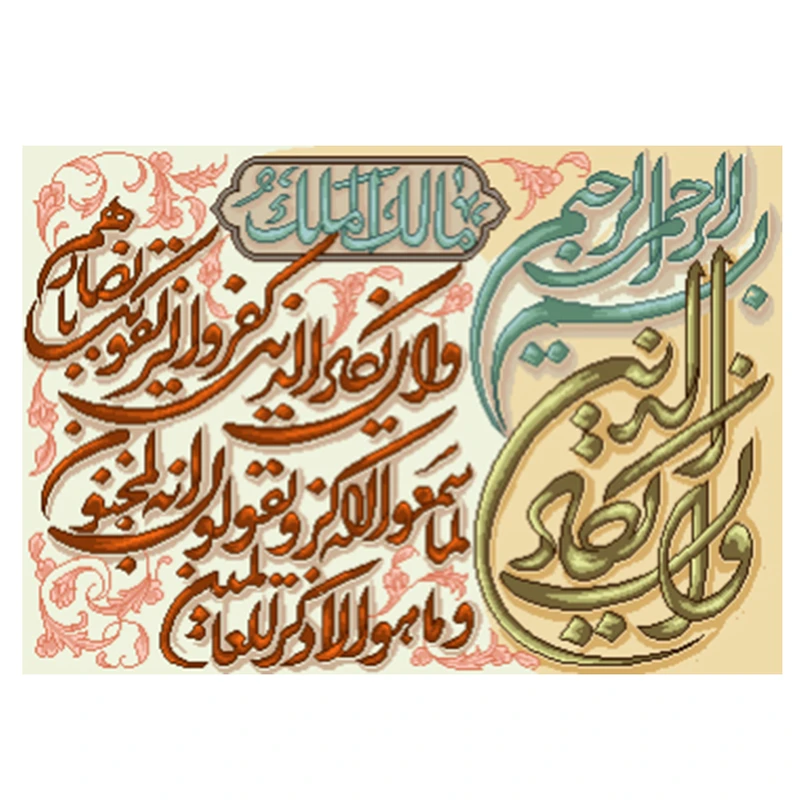 بسم الله الرحمن الرحيم
مالك الملك
وان يكاد الذين
وان يكاد الذين كفروا ليزلقونك بابصارهم
لما سمعوا الذكر ويقولون انه لمجنون
وما هو الا ذكر للعالمين